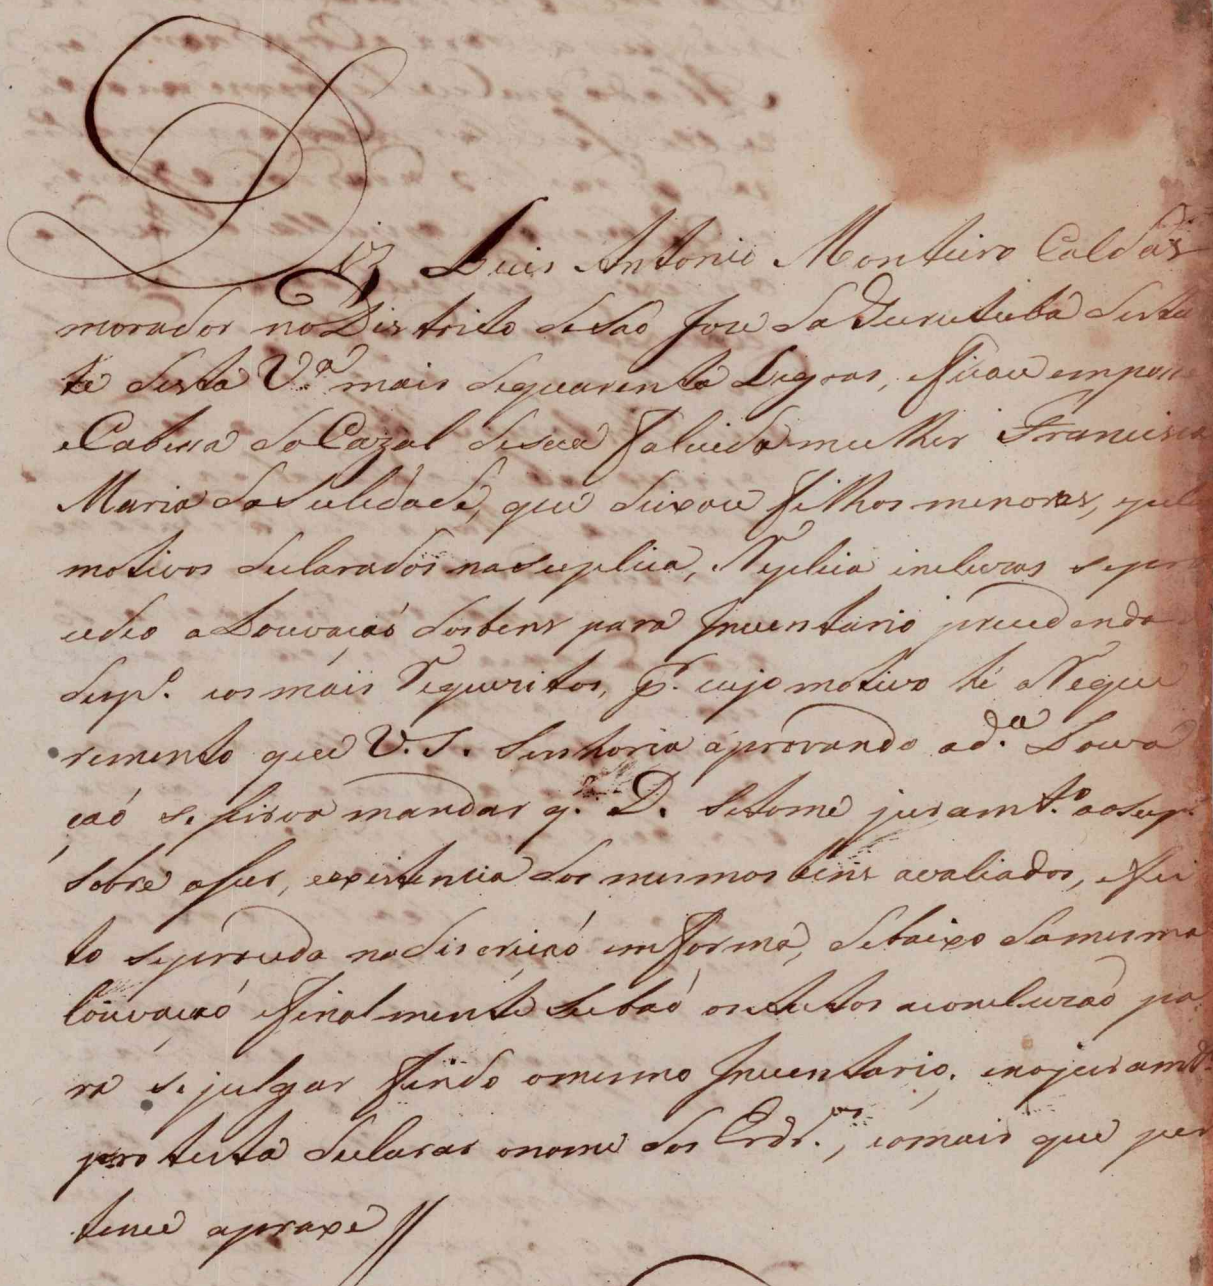 Diz Luis Antonio Monteiro Caldas
morador no Districto de Sao Jose da Gurutuba dista
te desta V.ª mais de quarenta Legoas, e ficou em posse
e Cabessa do Cazal de sua falecida mulher Francisca
Maria da Suledade, que deixou filhos menores, e pelos
motivos declarados na suplica, Replica incluzas se pro
cedeo a Louvaçaó dos bens para Inventario precedendo
Desp.º e os mais Requezitos, p.r cujo motivo hé o Reque
rimento que V.S. Senhoria aprovando a d.ª Louva
çaó se sirva mandar q. D. se tome juramt.º ao sup.
sobre a ser, e existencia dos mesmos bens avaliados, e fei
to se proceda na discriçaó em forma, debaixo da mesma
louvaçaó e finalmente subaó os autos a concluzaó pa
ra se julgar findo o mesmo Inventario, e no juramt.º
protesta declarar o nome dos Erdr.os, e o mais que per
tence a praxe //